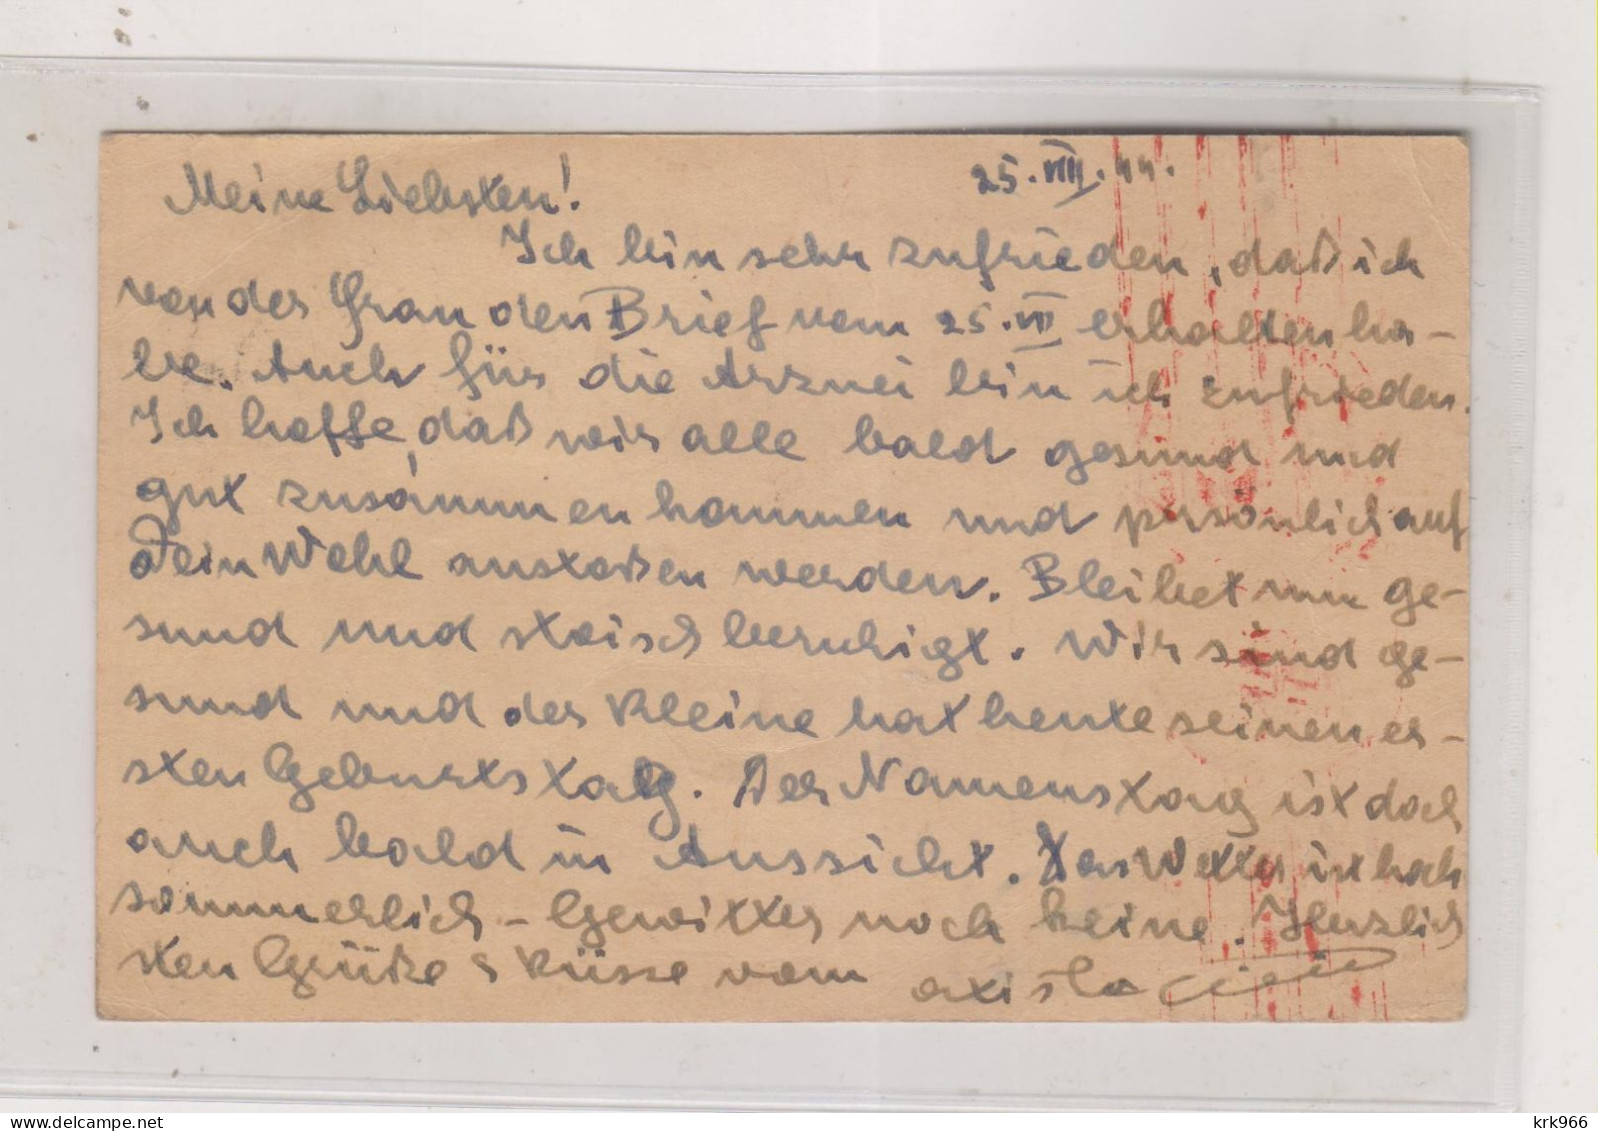 25. VIII. 44.
Meine Liebsten!
Ich bin sehr zufrieden, daß ich
von der Frau den Brief vom 25. VII erhalten ha-
be. Auch für die Arznei bin ich zufrieden.
Ich hoffe, daß wir alle bald gesund und
gut zusammenkommen und persönlich auf
Dein Wohl anstoßen werden. Bleibet nun ge-
sund und stoisch beruhigt. Wir sind ge-
sund und der Kleine hat heute seinen er-
sten Geburtstag. Der Namenstag ist doch
auch bald in Aussicht. Das Wetter ist hoch
sommerlich - Gewitter noch keine. Herzlich
sten Grüße & Küsse vom
www.delcampe.net
krk966